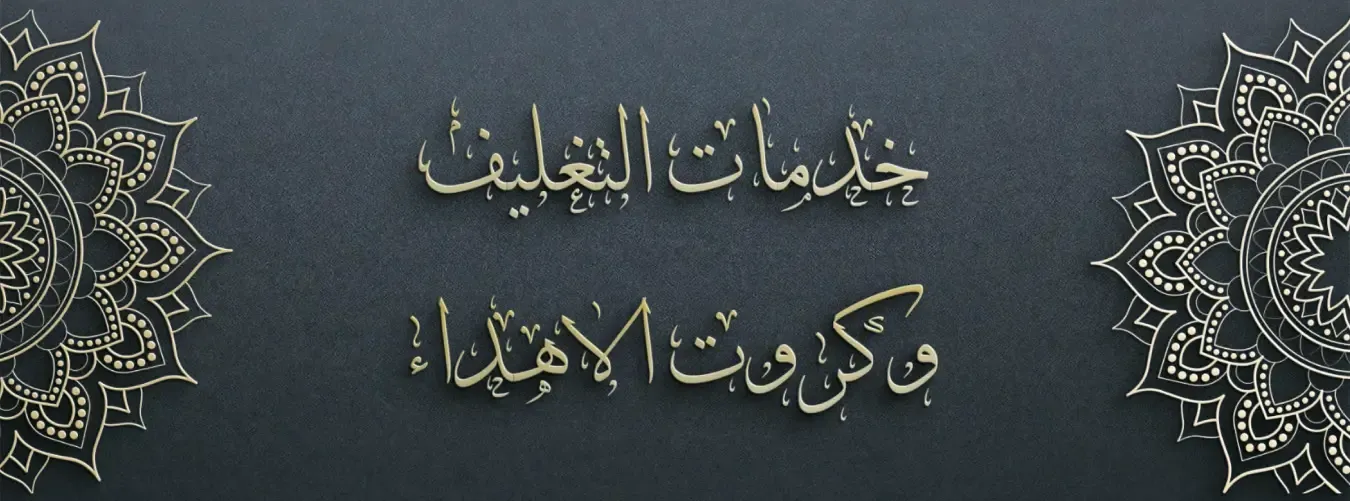 خدمات التغليف
وكروت الاهداء